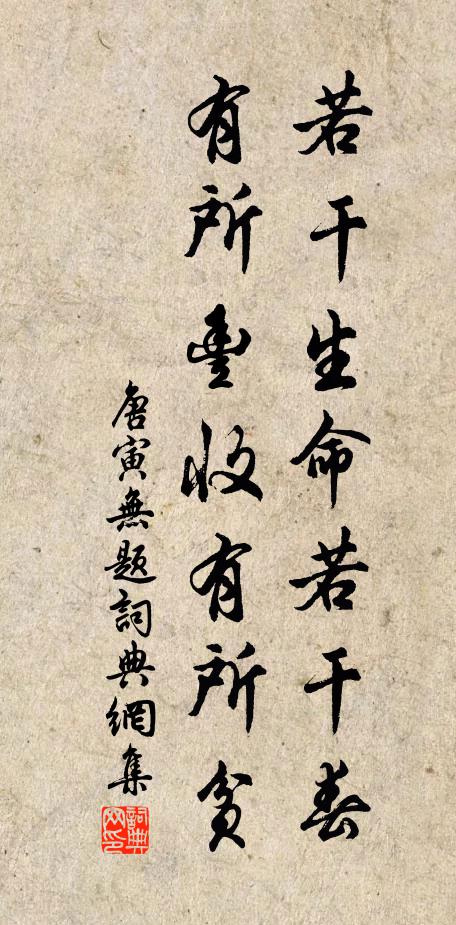 若干生命若干春
有所豐收有所貧
唐寅無題詞典網集
詞典网印